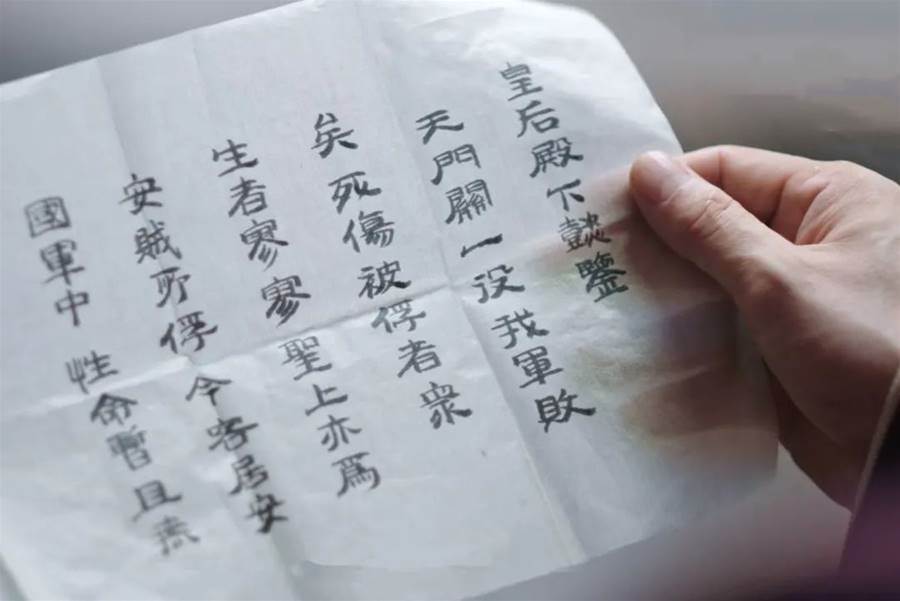 皇后殿下懿鑒
天門關一役我軍敗
矣死傷被俘者衆
生者寥寥聖上亦爲
安賊所俘今客居安
國軍中 性命暫且無